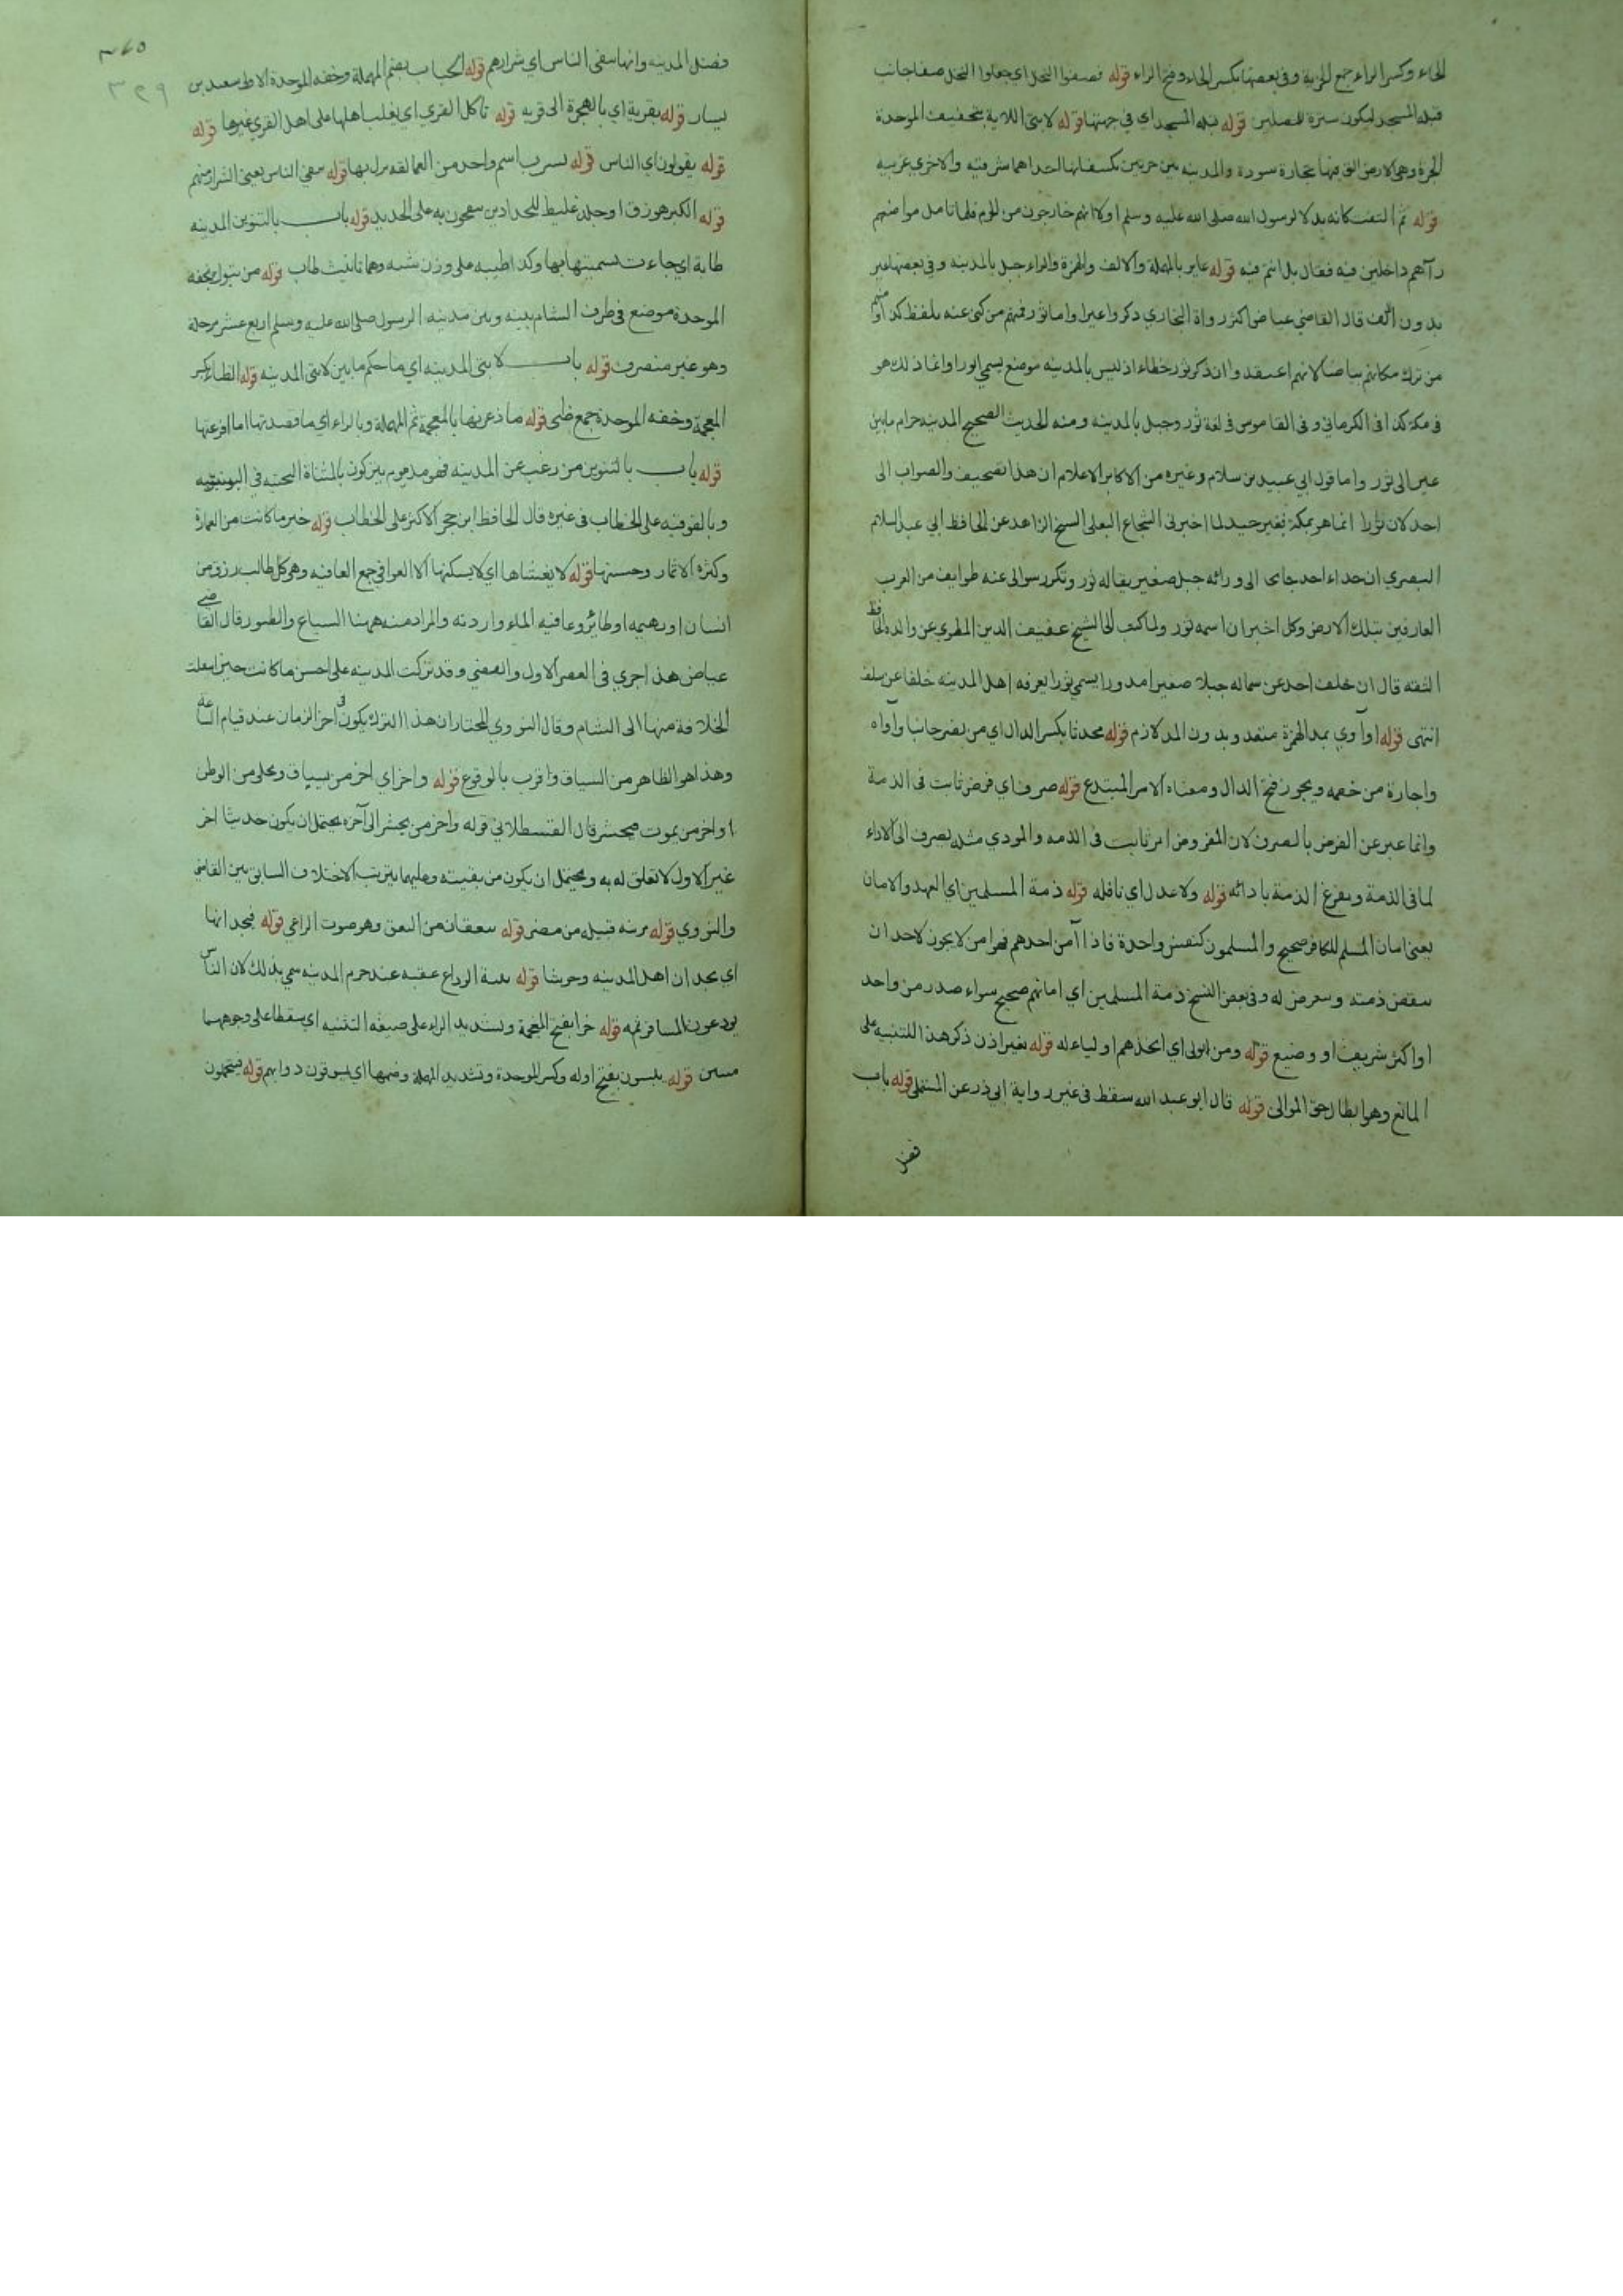 الحاء وكسر الراء جمع الخربة وفي بعضها بكسر الحاء وفتح الراء قوله فصفوا النخل اي جعلوا النخل صفا جانب
قبلة المسجد ليكون سترة للمصلين قوله قبلة المسجد اي في جهتها قوله لابتي اللابة بتخفيف الموحدة
الحرة وهي الارض التي فيها حجارة سودة والمدينة بين حرتين تكتنفانها احداهما شرقية والاخرى غربية
قوله ثم التفت كانه بدلا لرسول الله صلى الله عليه وسلم اولا انهم خارجون من الحرم فلما تامل مواضعهم
رآهم داخلين فيه فقال بل انتم فيه قوله عاير بالمهملة والالف والهمزة والراء جبل بالمدينة وفي بعضها عير
بدون الف قال القاضي عياض اكثر رواة البخاري ذكروا عيرا واما ثور فمنهم من كنى عنه بلفظ كذا ومنهم
من ترك مكانه بياضا لانهم اعتقدوا ان ذكر ثور خطاء اذ ليس بالمدينة موضع يسمى ثورا وانما ذلك هو
في مكة كذا في الكرماني وفي القاموس في لغة ثور وجبل بالمدينة ومنه الحديث الصحيح المدينة حرام ما بين
عير الى ثور واما قول ابي عبيد بن سلام وغيره من الاكابر الاعلام ان هذا تصحيف والصواب الى
احد لان ثورا انما هو بمكة فغير جيد لما اخبرني الشجاع البعلي الشيخ الزاهد عن الحافظ ابي عبد السلام
البصري ان حذاء احد جانحا الى ورائه جبل صغير يقال له ثور وتكرر سوالى عنه طوايف من العرب
العارفين بتلك الارض وكل اخبر ان اسمه ثور ولما كتب الى الشيخ عفيف الدين المطري عن والده الحافظ
الثقة قال ان خلف احد عن شماله جبلا صغيرا مدورا يسمى ثورا يعرفه اهل المدينة خلفا عن سلف
انتهى قوله او آوي بمد الهمزة متعد وبدون المد لازم قوله محدثا بكسر الدال اي من نصر جانيا وآواه
واجاره من خصمه ويجوز فتح الدال ومعناه الامر المبتدع قوله صرف اي فرض ثابت في الذمة
وانما عبر عن الفرض بالصرف لان المفروض امر ثابت في الذمة والمودي مثله يصرف الى الاداء
لما في الذمة ويفرغ الذمة بادائه قوله ولا عدل اي نافلة قوله ذمة المسلمين اي العهد والامان
يعني امان المسلم للكافر صحيح والمسلمون كنفس واحدة فاذا آمن احدهم فهو امن لا يجوز لاحد ان
ينقض ذمته ويتعرض له وفي بعض النسخ ذمة المسلمين اي امانهم صحيح سواء صدر من واحد
او اكثر شريف او وضيع قوله ومن تولى اي اتخذهم اولياء له قوله بغير اذن ذكر هذا للتنبيه على
المانع وهو ابطال حق الموالى قوله قال ابو عبد الله سقط في غير رواية ابي ذر عن المستملي قوله باب
فضل
٣٤٥
٣٤٩
فضل المدينة وانها تنفي الناس اي شرارهم قوله الحباب بضم المهملة وخفة الموحدة الاولى سعيد بن
يسار قوله بقرية اي بالهجرة الى قرية قوله تاكل القرى اي يغلب اهلها على اهل القرى غيرها قوله
قوله يقولون اي الناس قوله يثرب اسم واحد من العمالقة نزل بها قوله تنفي الناس يعني الشرار منهم
قوله الكير هو زق او جلد غليظ للحدادين ينفخون به على الحديد قوله باب بالتنوين المدينة
طابة اي جاءت تسميتها بها وكذا طيبة على وزن شيبة وهما تانيث طاب قوله من تبوك بخفة
الموحدة موضع في طرف الشام بينه وبين مدينة الرسول صلى الله عليه وسلم اربع عشر مرحلة
وهو غير منصرف قوله باب لابتي المدينة اي ما حكم ما بين لابتي المدينة قوله الظباء بكسر
المعجمة وخفة الموحدة جمع ظبي قوله ما ذعرتها بالمعجمة ثم المهملة وبالراء اي ما قصدتها اما افزعتها
قوله باب بالتنوين من رغب عن المدينة فهو مذموم يتركون بالمثناة التحتية في اليونينية
وبالفوقية على الخطاب في غيره قال الحافظ ابن حجر الاكثر على الخطاب قوله خير ما كانت من العمارة
وكثرة الاثمار وحسنها قوله لا يغشاها اي لا يسكنها الا العوافي جمع العافية وهو كل طالب رزق من
انسان او بهيمة او طائر وعافية الماء واردته والمراد منه ههنا السباع والطيور قال القاضي
عياض هذا جرى في العصر الاول وانقضى وقد تركت المدينة على احسن ما كانت حين انتقلت
الخلافة منها الى الشام وقال النووي المختار ان هذا الترك يكون في اخر الزمان عند قيام الساعة
وهذا هو الظاهر من السياق واقرب بالوقوع قوله واخر اي اخر من يساق ويجلى من الوطن
او اخر من يموت فيحشر قال القسطلاني قوله واخر من يحشر الى آخره يحتمل ان يكون حديثا اخر
غير الاول لا تعلق له به ويحتمل ان يكون من بقيته وعليهما يترتب الاختلاف السابق بين القاضي
والنووي قوله مزينة قبيلة من مضر قوله ينعقان من النعق وهو صوت الراعي قوله فيجدانها
اي يجدان اهل المدينة وحوشا قوله ثنية الوداع عقبة عند حرم المدينة سمي بذلك لان الناس
يودعون المسافر ثمه قوله خرا بفتح المعجمة وتشديد الراء على صيغة التثنية اي سقطا على وجوههما
ميتين قوله يبسون بفتح اوله وكسر الموحدة وتشديد المهملة وضمها اي يسوقون دوابهم قوله فيتحملون